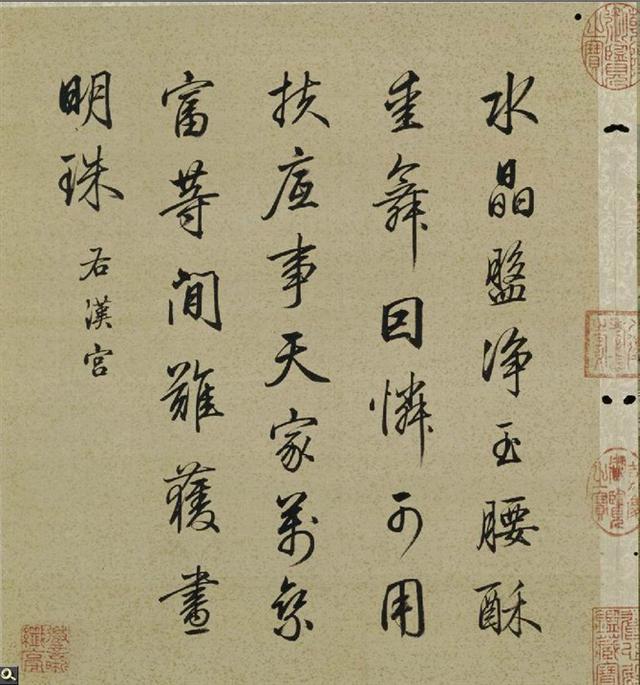 水晶盤淨玉腰酥
重舞回憐可用
扶底事天家萬乘
富等間難獲畫
明珠 右漢宮